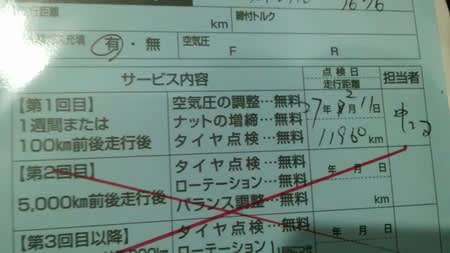 走行距離
km
締付トルク
有・無
空気圧
F
R
サービス内容
点検日
走行距離
担当者
【第1回目】
1週間または
100km前後走行後
空気圧の調整…無料
ナットの増締…無料
タイヤ点検…無料
27年2月11日
11960km
【第2回目】
5,000km前後走行後
タイヤ点検…無料
ローテーション…無料
バランス調整…無料
年 月 日
km
【第3回目以降】
タイヤ点検…無料
ローテーション
年 月 日